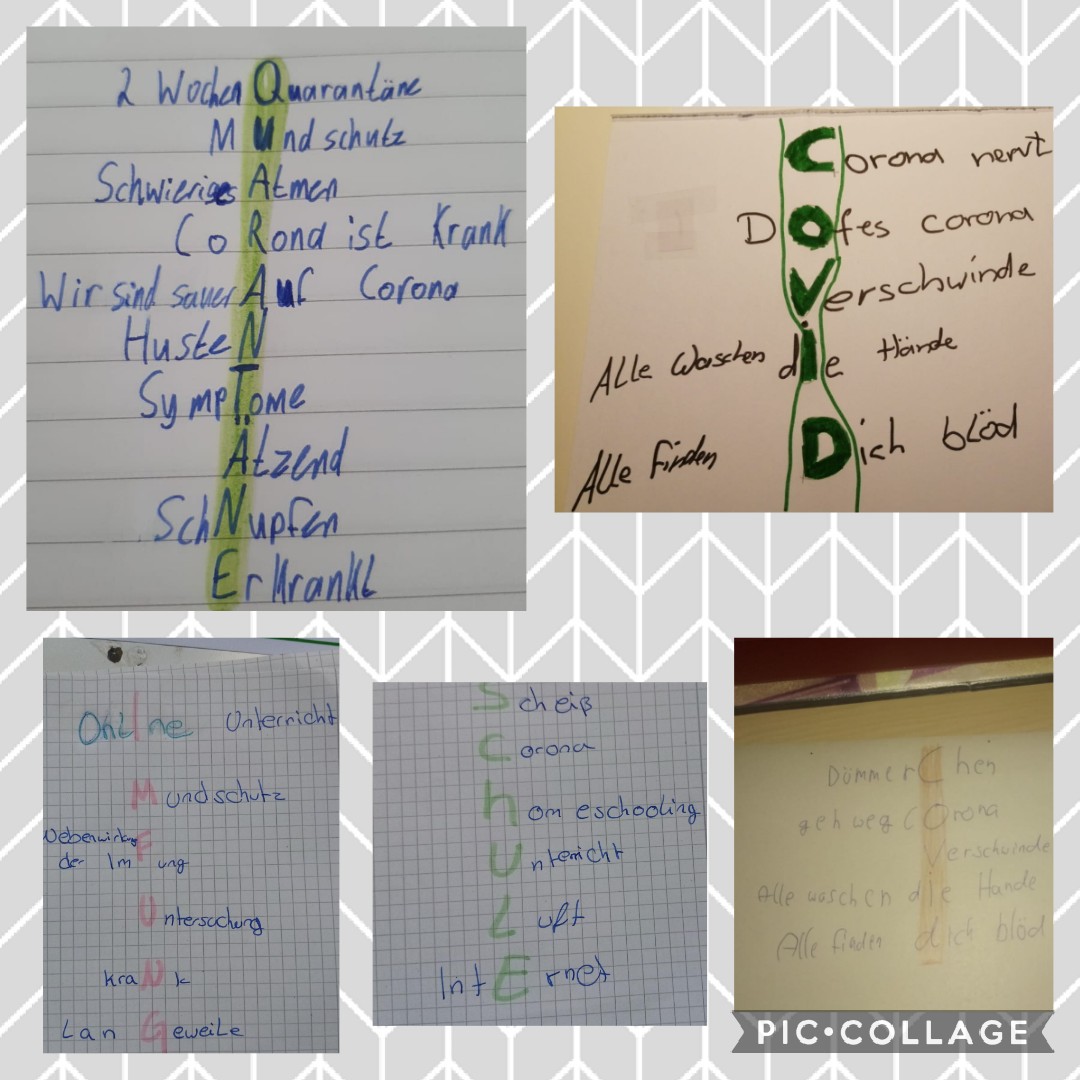 2 Wochen Quarantäne
MUndschutz
Schwieriges Atmen
CoRona ist Krank
Wir sind sauer Auf Corona
HusteN
SympTome
Ätzend
SchNupfen
Erkrankt
Corona nervt
DOfes corona
Verschwinde
Alle Waschen die Hände
Alle Finden Dich blöd
OnLIne Unterricht
Mundschutz
Nebenwirkung
der ImPfung
Untersuchung
kraNk
LanGeweile
Scheiß
Corona
homeschooling
Unterricht
Luft
IntErnet
DümmerChen
geh weg COrona
Verschwinde
Alle waschen die Hände
Alle finden dich blöd
PIC•COLLAGE